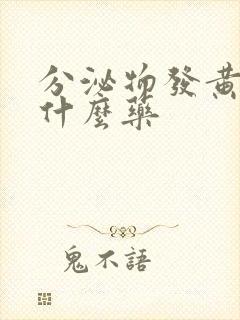 分泌物發黃
什麼藥
鬼不語